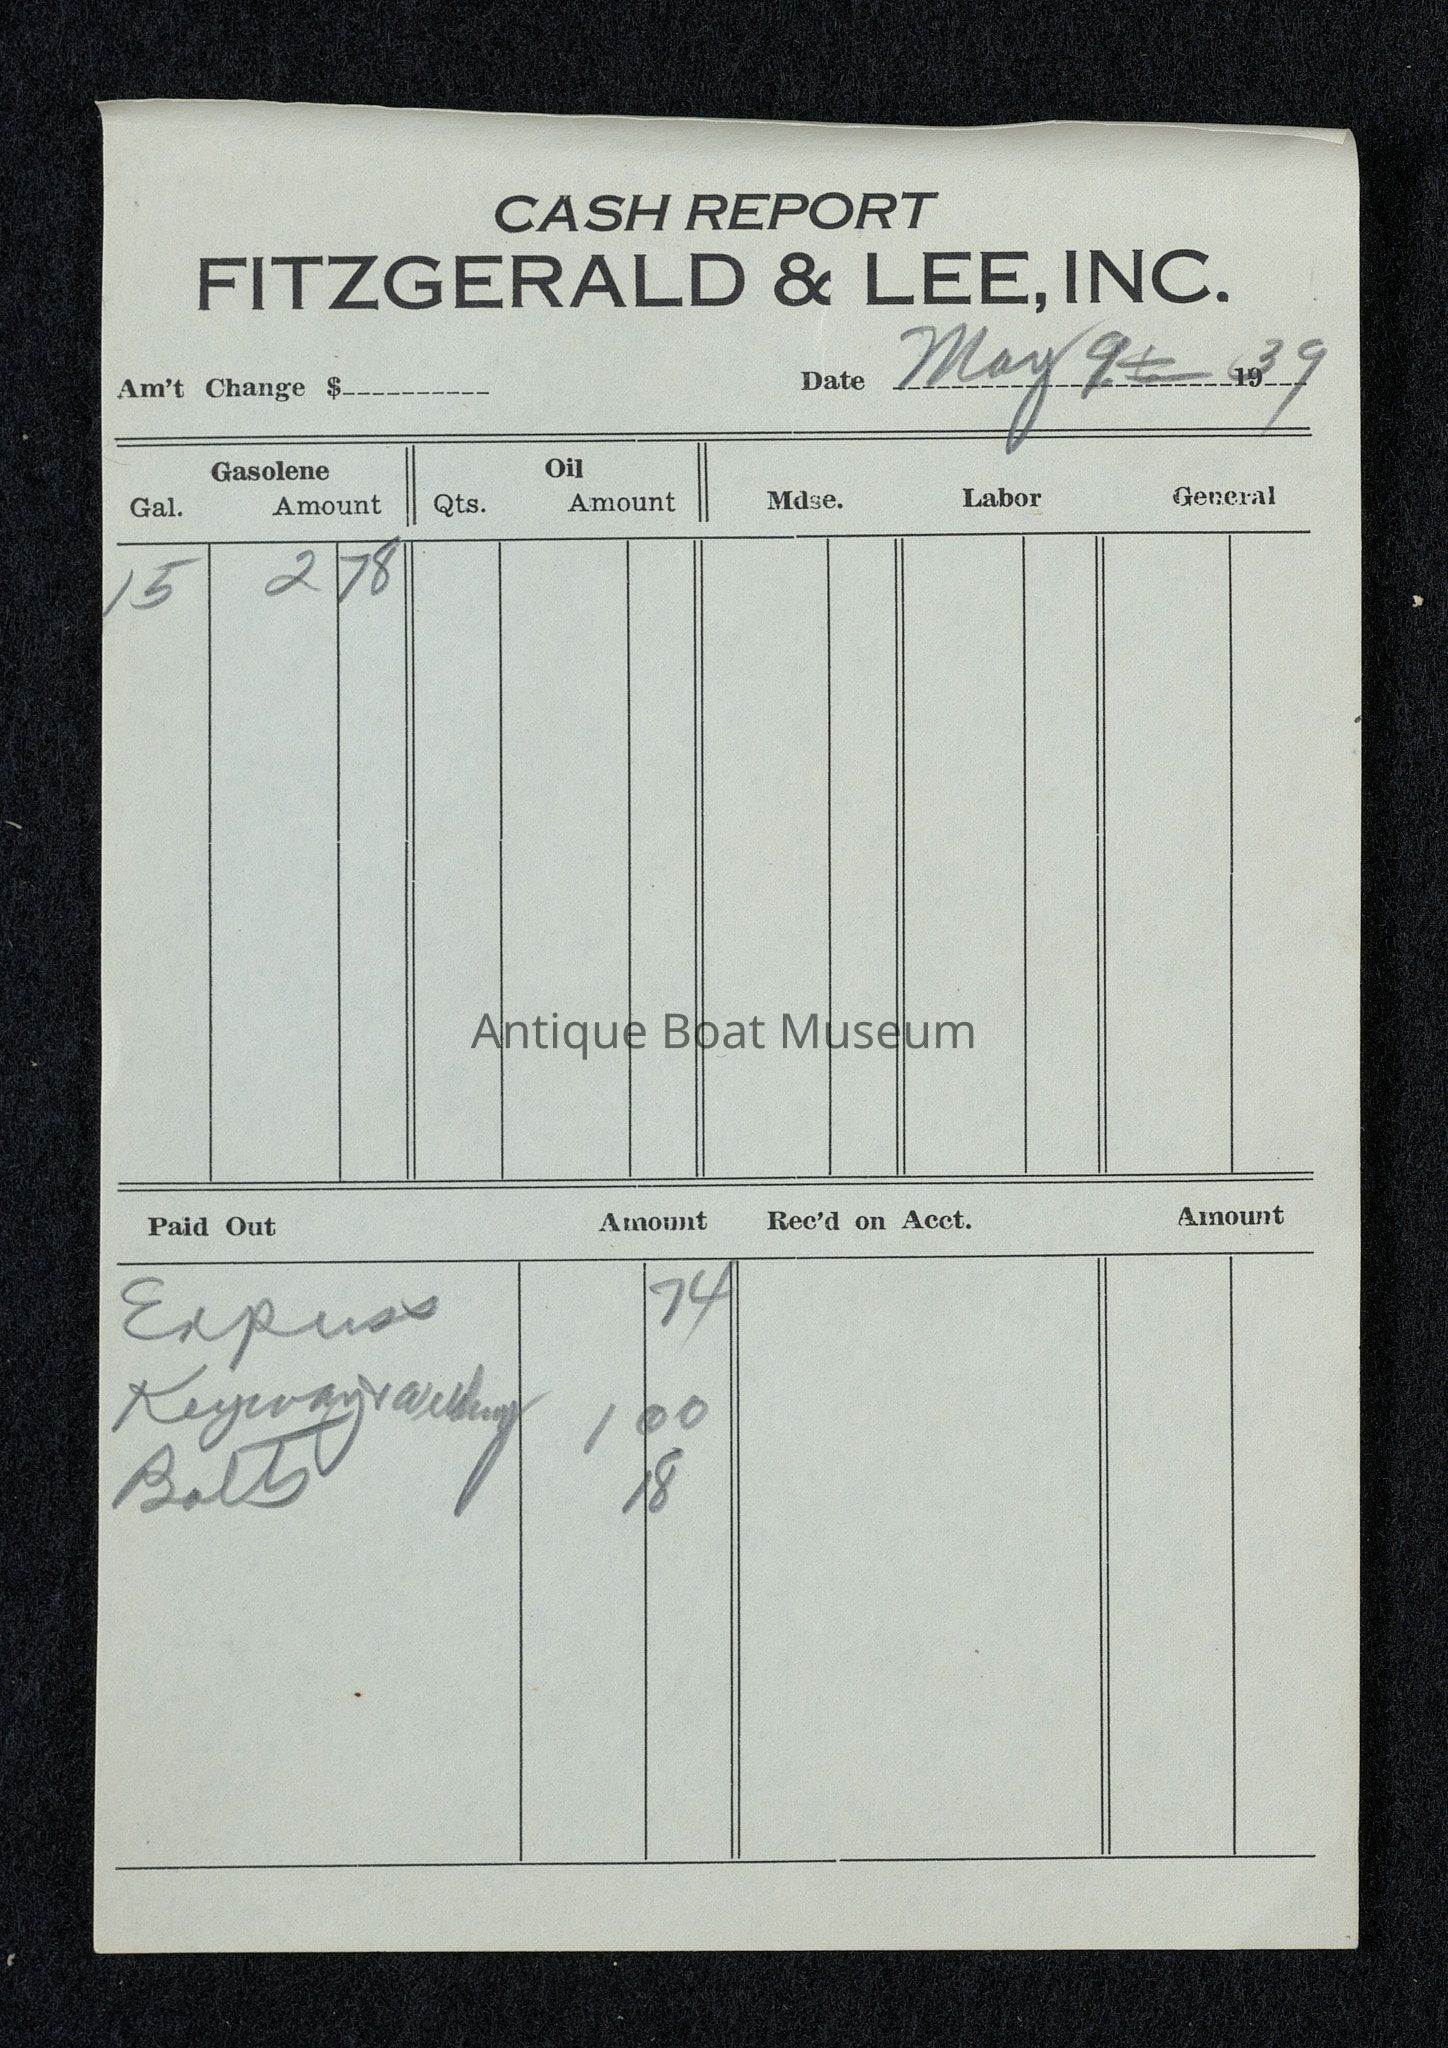 CASH REPORT
FITZGERALD & LEE, INC.
Am't Change $ Date May 9th 1939
Gasolene Oil
Gal. Amount Qts. Amount Mdse. Labor General
15 2 78
Antique Boat Museum
Paid Out Amount Rec'd on Acct. Amount
Express 74
Keyway & Welding 1 00
Bolts 18